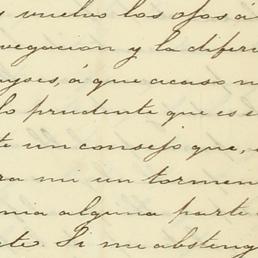 s vuelvo los ojos á
vegacion y la difer
ayses, á que acaso n
lo prudente que es e
te un consejo que,
ra mi un tormen
nia alguna parte
te. Si me absteng